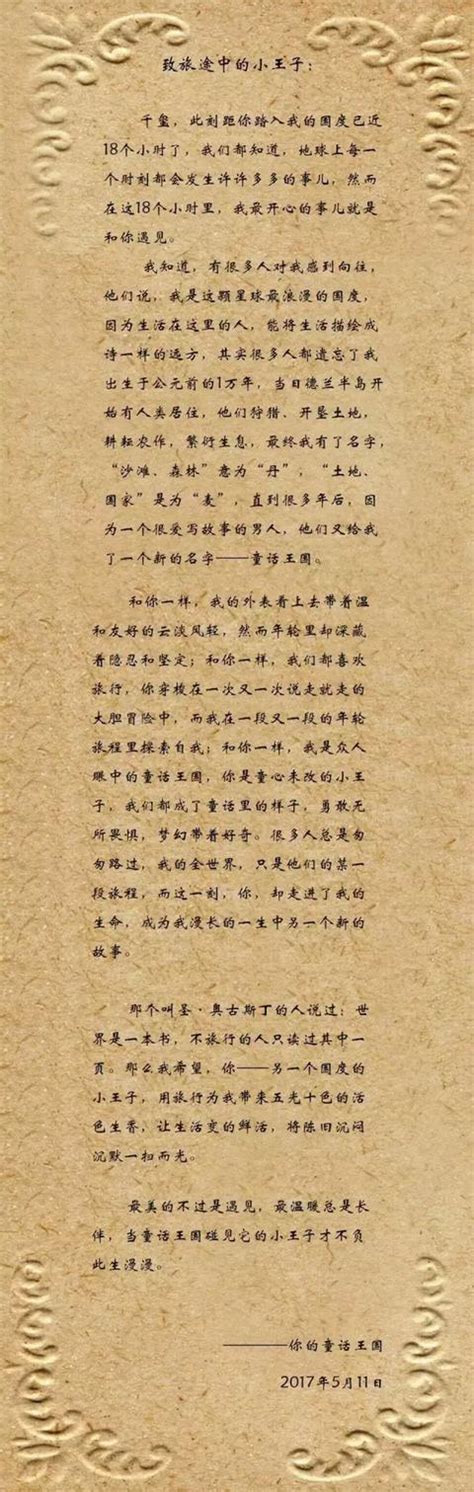 致旅途中的小王子：
千玺，此刻距你踏入我的国度已近
18个小时了，我们都知道，地球上每一
个时刻都会发生许许多多的事儿，然而
在这18个小时里，我最开心的事儿就是
和你遇见。
我知道，有很多人对我感到向往，
他们说，我是这颗星球最浪漫的国度，
因为生活在这里的人，能将生活描绘成
诗一样的远方，其实很多人都遗忘了我
出生于公元前的1万年，当日德兰半岛开
始有人类居住，他们狩猎、开垦土地，
耕耘农作，繁衍生息，最终我有了名字，
“沙滩、森林”意为“丹”，“土地、
国家”是为“麦”，直到很多年后，因
为一个很爱写故事的男人，他们又给我
了一个新的名字——童话王国。
和你一样，我的外表看上去带着温
和友好的云淡风轻，然而年轮里却深藏
着隐忍和坚定；和你一样，我们都喜欢
旅行，你穿梭在一次又一次说走就走的
大胆冒险中，而我在一段又一段的年轮
旅程里探索自我；和你一样，我是众人
眼中的童话王国，你是童心未改的小王
子，我们都成了童话里的样子，勇敢无
所畏惧，梦幻带着好奇。很多人总是匆
匆路过，我的全世界，只是他们的某一
段旅程，而这一刻，你，却走进了我的
生命，成为我漫长的一生中另一个新的
故事。
那个叫圣·奥古斯丁的人说过：世
界是一本书，不旅行的人只读过其中一
頁。那么我希望，你——另一个国度的
小王子，用旅行为我带来五光十色的活
色生香，让生活变的鲜活，将陈旧沉闷
沉默一扫而光。
最美的不过是遇见，最温暖总是长
伴，当童话王国碰见它的小王子才不负
此生漫漫。
————你的童话王国
2017年5月11日